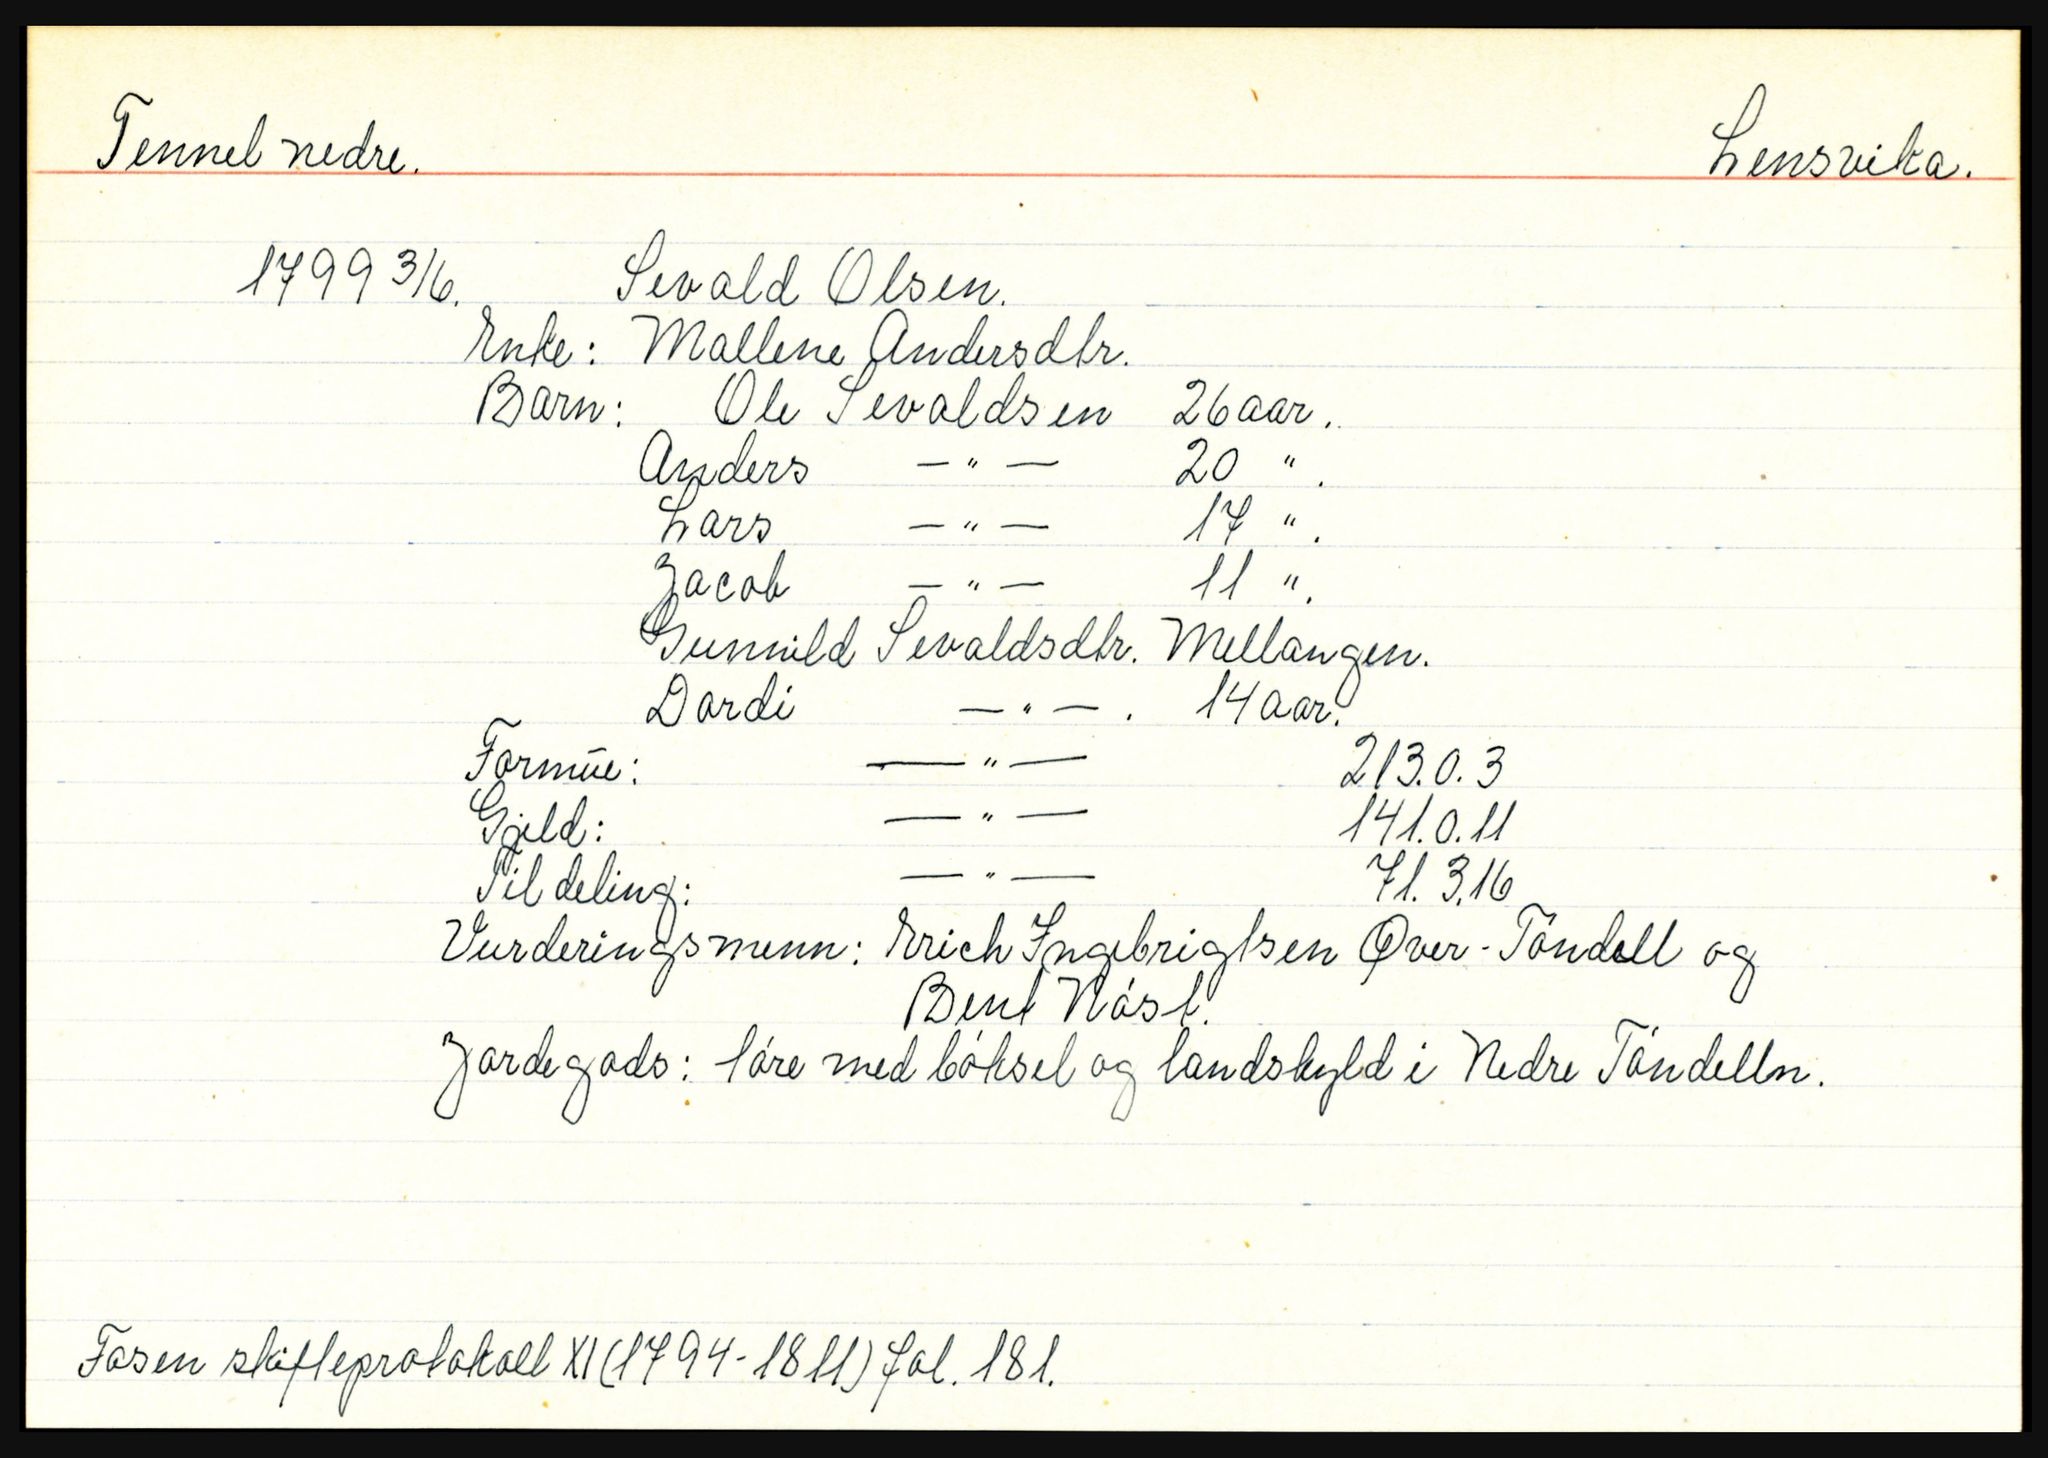 Tennel nedre. Lensvika.
1799 3/6. Sevald Olsen.
Enke: Mallene Andersdtr.
Barn: Ole Sevaldsen 26 aar.
Anders —"— 20 ".
Lars —"— 17 ".
Jacob —"— 11 ".
Gunnild Sevaldsdtr. Mellangen.
Dordi —"—. 14 aar.
Formūe: —"— 213.0.3
Gjeld: —"— 141.0.11
Til deling: —"— 71.3.16
Vurderingsmenn: Erich Ingebrigtsen Øver-Töndell og
Bent Nóst.
Jordegods: 1 óre med bóksel og landskyld i Nedre Töndelln.
Fosen skifteprotokoll XI (1794-1811) fol. 181.